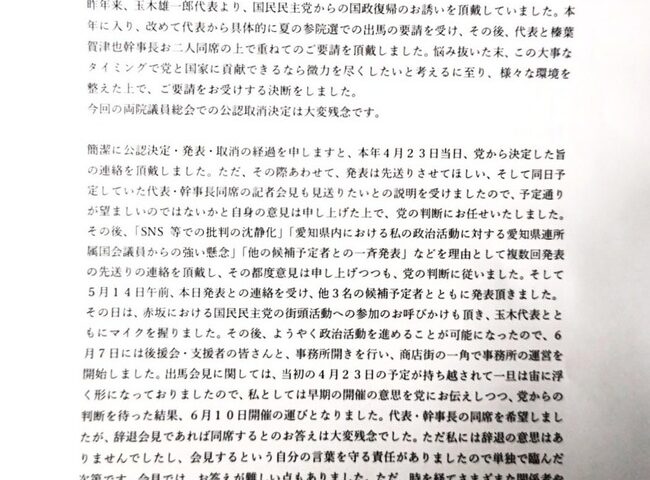 昨年来、玉木雄一郎代表より、国民民主党からの国政復帰のお誘いを頂戴していました。本
年に入り、改めて代表から具体的に夏の参院選での出馬の要請を受け、その後、代表と榛葉
賀津也幹事長お二人同席の上で重ねてのご要請を頂戴しました。悩み抜いた末、この大事な
タイミングで党と国家に貢献できるなら微力を尽くしたいと考えるに至り、様々な環境を
整えた上で、ご要請をお受けする決断をしました。
今回の両院議員総会での公認取消決定は大変残念です。
簡潔に公認決定・発表・取消の経過を申しますと、本年4月23日当日、党から決定した旨
の連絡を頂戴しました。ただ、その際あわせて、発表は先送りさせてほしい、そして同日予
定していた代表・幹事長同席の記者会見も見送りたいとの説明を受けましたので、予定通り
が望ましいのではないかと自身の意見は申し上げた上で、党の判断にお任せいたしました。
その後、「SNS 等での批判の沈静化」「愛知県内における私の政治活動に対する愛知県連所
属国会議員からの強い懸念」「他の候補予定者との一斉発表」などを理由として複数回発表
の先送りの連絡を頂戴し、その都度意見は申し上げつつも、党の判断に従いました。そして
5月14日午前、本日発表との連絡を受け、他3名の候補予定者とともに発表頂きました。
その日は、赤坂における国民民主党の街頭活動への参加のお呼びかけも頂き、玉木代表とと
もにマイクを握りました。その後、ようやく政治活動を進めることが可能になったので、6
月7日には後援会・支援者の皆さんと、事務所開きを行い、商店街の一角で事務所の運営を
開始しました。出馬会見に関しては、当初の4月23日の予定が持ち越されて一旦は宙に浮
く形になっておりましたので、私としては早期の開催の意思を党にお伝えしつつ、党からの
判断を待った結果、6月10日開催の運びとなりました。代表・幹事長の同席を希望しまし
たが、辞退会見であれば同席するとのお答えは大変残念でした。ただ私には辞退の意思はあ
りませんでしたし、会見するという自分の言葉を守る責任がありましたので単独で臨んだ
次第です。会見では、お答えが難しい点もありました。ただ、時を経てさまざまな関係者や